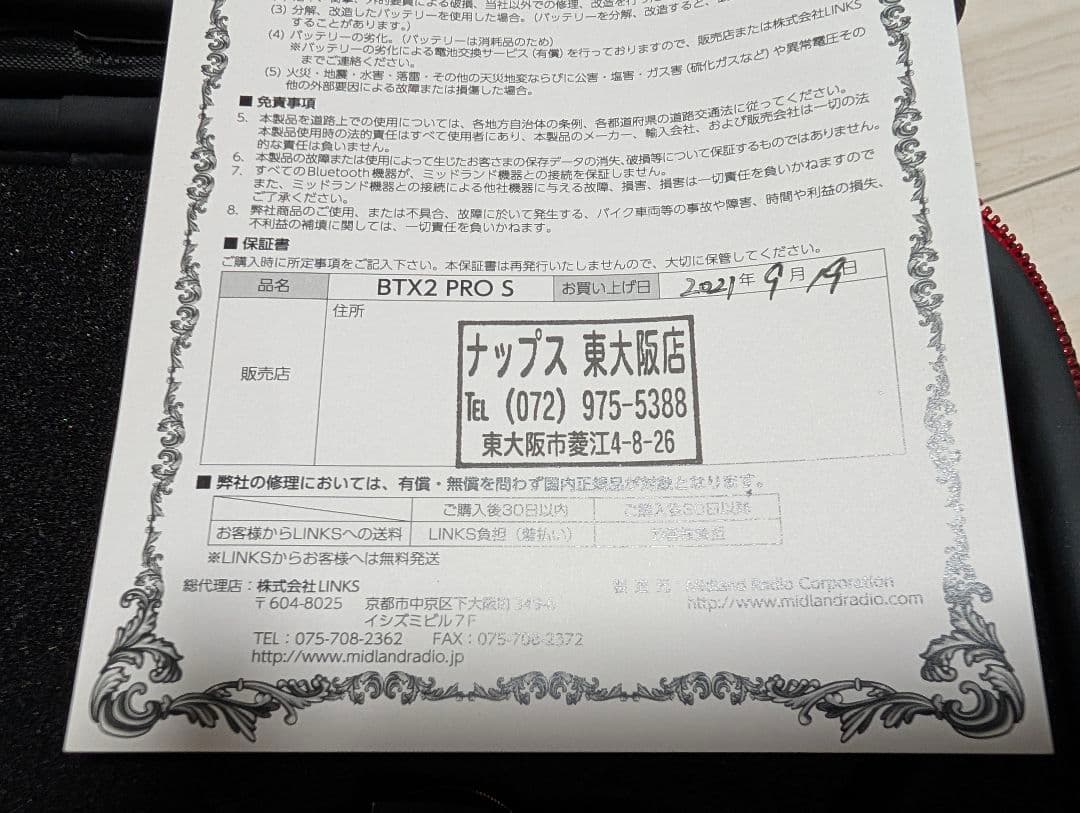 による破損、当社以外での修理、改造を行っ
(3) 分解、改造したバッテリーを使用した場合。(バッテリーを分解、改造すると、
することがあります。)
(4) バッテリーの劣化。(バッテリーは消耗品のため)
※バッテリーの劣化による電池交換サービス(有償)を行っておりますので、販売店または株式会社LINKS
までご連絡ください。
(5) 火災・地震・水害・落雷・その他の天災地変ならびに公害・塩害・ガス害(硫化ガスなど)や異常電圧その
他の外部要因による故障または損傷した場合。
■ 免責事項
5. 本製品を道路上での使用については、各地方自治体の条例、各都道府県の道路交通法に従ってください。
本製品使用時の法的責任はすべて使用者にあり、本製品のメーカー、輸入会社、および販売会社は一切の法
的な責任は負いません。
6. 本製品の故障または使用によって生じたお客さまの保存データの消失、破損等について保証するものではありません。
7. すべてのBluetooth機器が、ミッドランド機器との接続を保証しません。
また、ミッドランド機器との接続による他社機器に与える故障、損害、損害は一切責任を負いかねますので
ご了承ください。
8. 弊社商品のご使用、または不具合、故障に於いて発生する、バイク車両等の事故や障害、時間や利益の損失、
不利益の補填に関しては、一切責任を負いかねます。
■ 保証書
ご購入時に所定事項をご記入下さい。本保証書は再発行いたしませんので、大切に保管してください。
品名 BTX2 PRO S お買い上げ日 2021年 9月 19日
販売店 住所
ナップス 東大阪店
TEL (072) 975-5388
東大阪市菱江4-8-26
■ 弊社の修理においては、有償・無償を問わず国内正規品が対象となります。
ご購入後30日以内 ご購入後30日以降
お客様からLINKSへの送料 LINKS負担(着払い) お客様負担
※LINKSからお客様へは無料発送
総代理店：株式会社LINKS 製造元：Midland Radio Corporation
〒604-8025 京都市中京区下大阪町 http://www.midlandradio.com
イシズミビル7F
TEL：075-708-2362 FAX：075-708-2372
http://www.midlandradio.jp